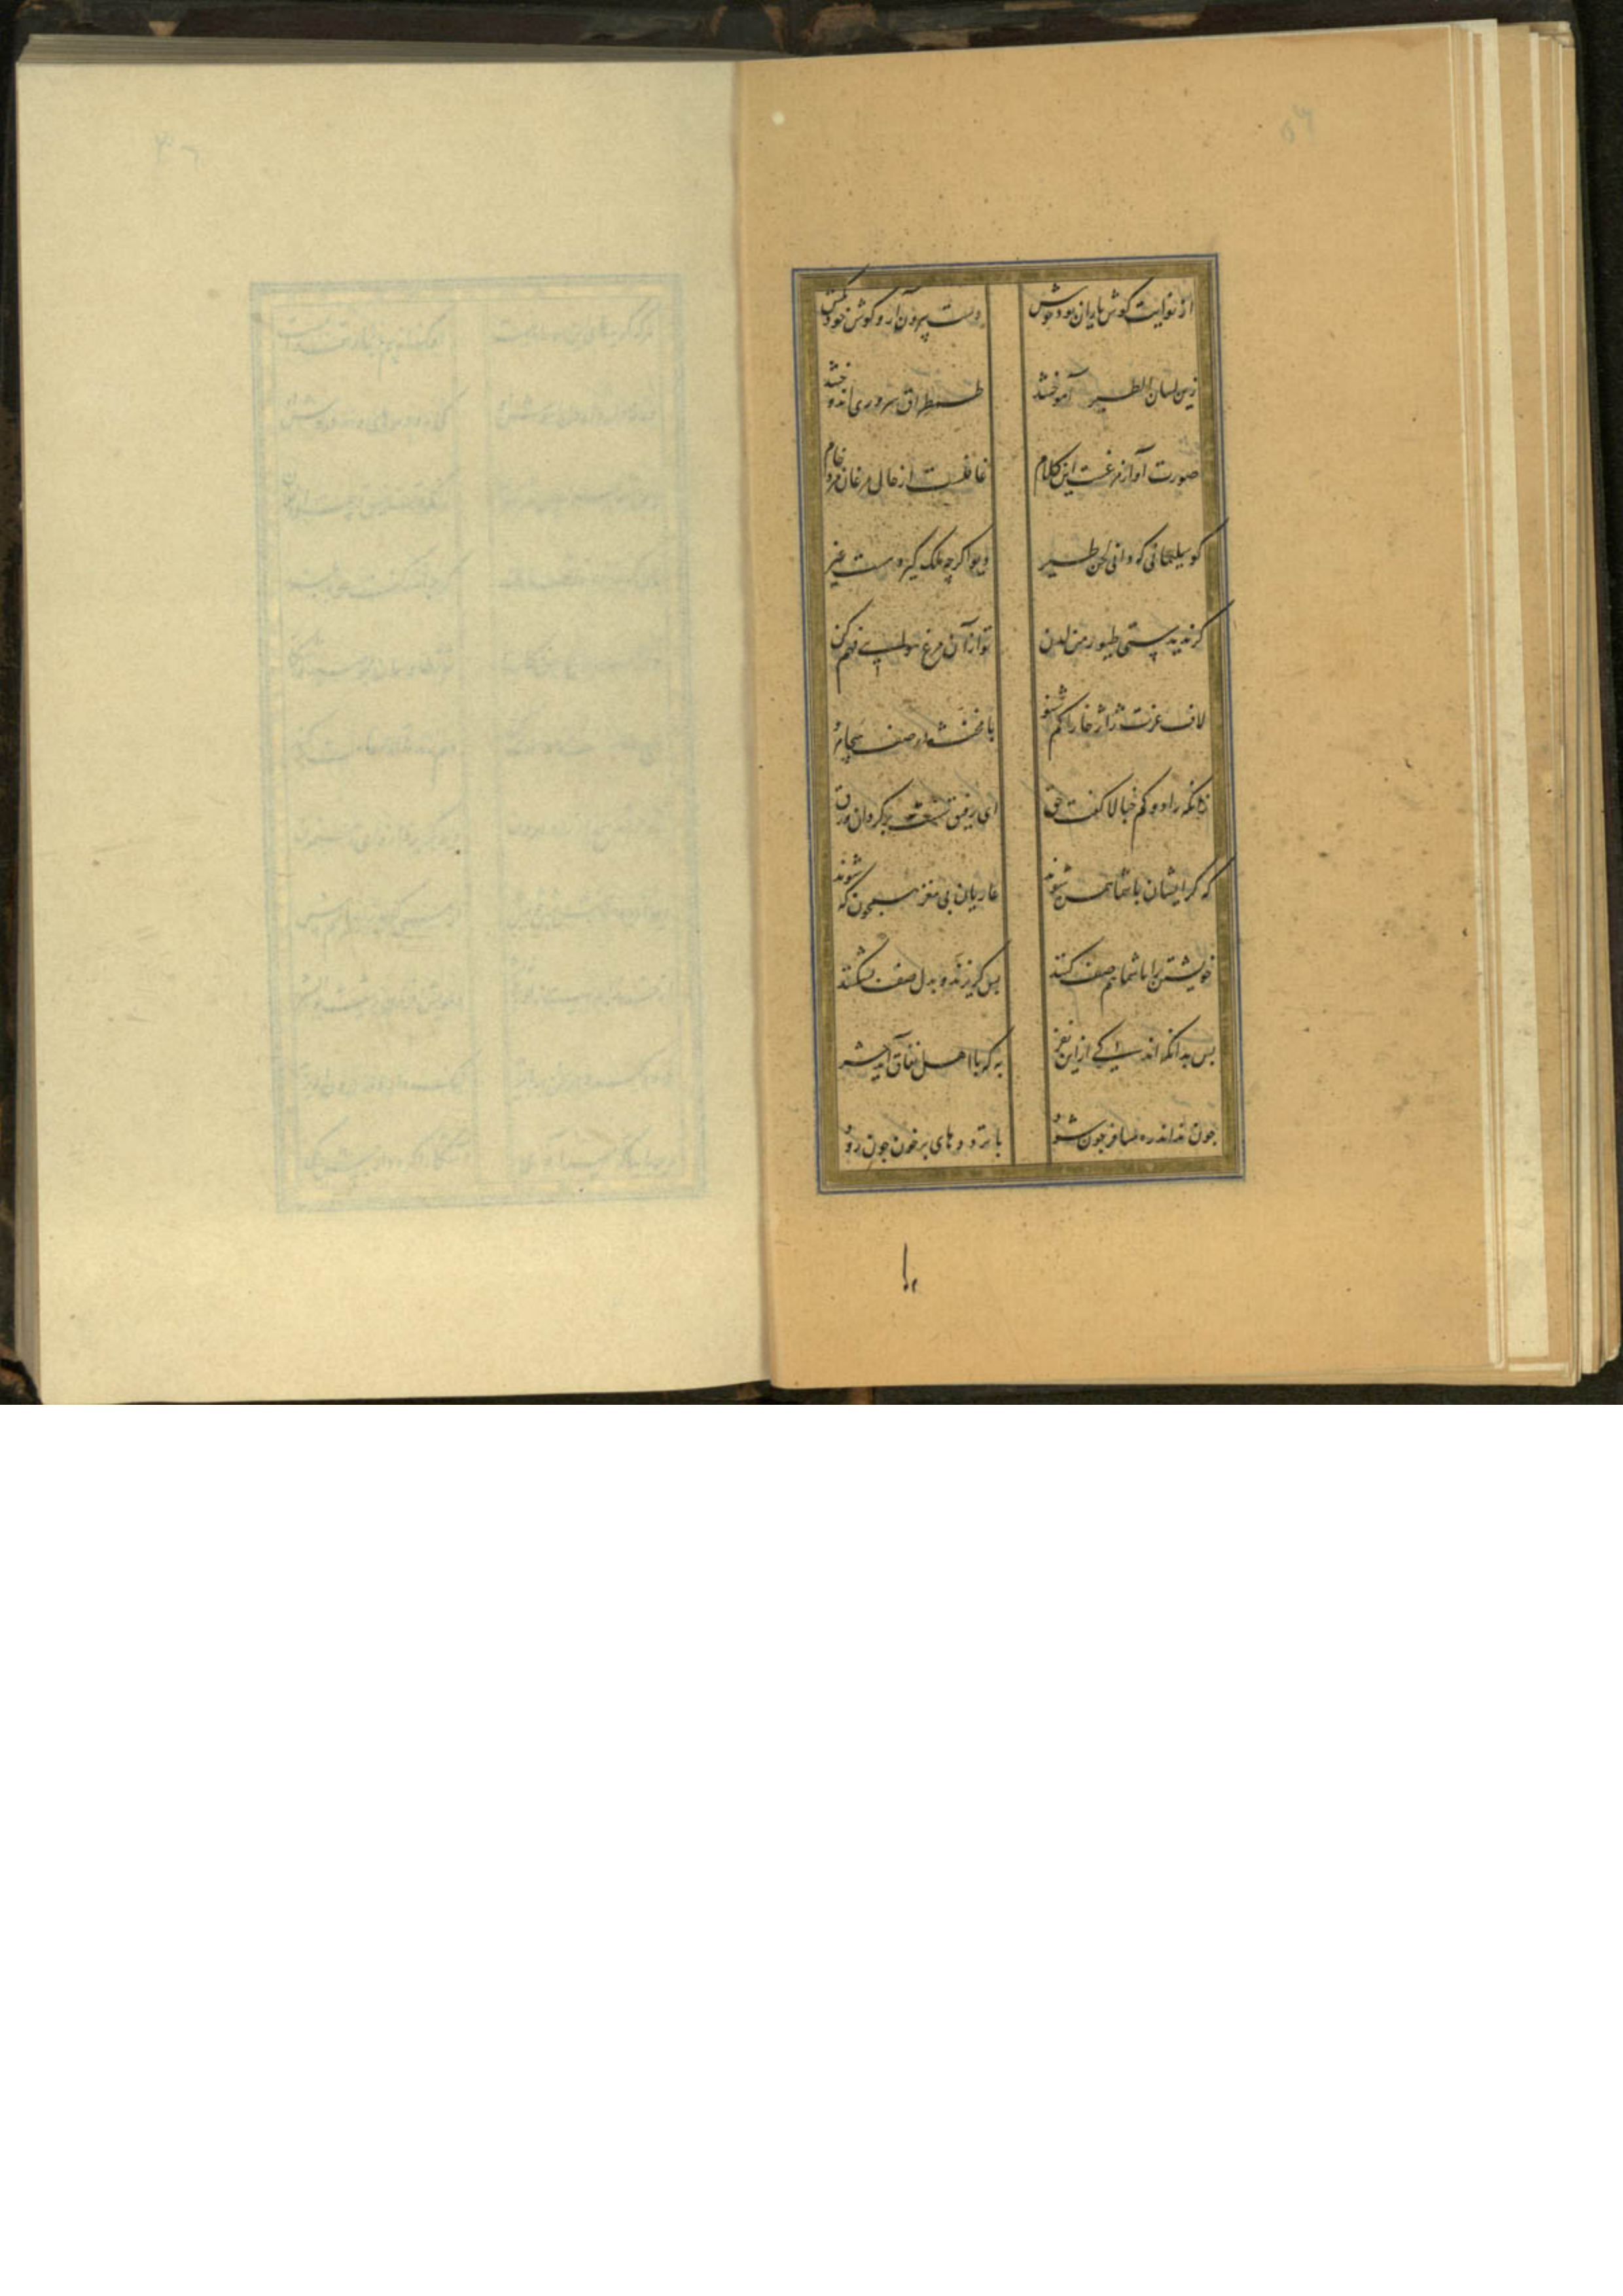 از نوایت گوش یاران بود خوش
دست بیرون آر و گوش خود بکش
زین لسان الطیر آموختند
طمطراق سروری اندوختند
صورت آواز مرغست این کلام
غافلست از حال مرغان مرد خام
کو سلیمانی که دانی لحن طیر
دیو اگر چه ملک گیرد هست غیر
گر ندیدستی طیور من لدن
تو از آن مرغ هوایی فهم کن
لاف غزت ژاژخا را کم شنو
با چنینها در صف هیجا مرو
زانکه زادوکم خبالا گفت حق
ای رفیق سست برگردان ورق
که گر ایشان با شما همره شوند
غازیان بی مغز همچون که شوند
خویشتن را با شما هم صف کنند
پس گریزند و دل صف بشکنند
پس بدانکه اندکی از این نفر
به که با اهل نفاق آید حشر
چون نداند ره مسافر چون شود
با ترددهای پر خون چون رود